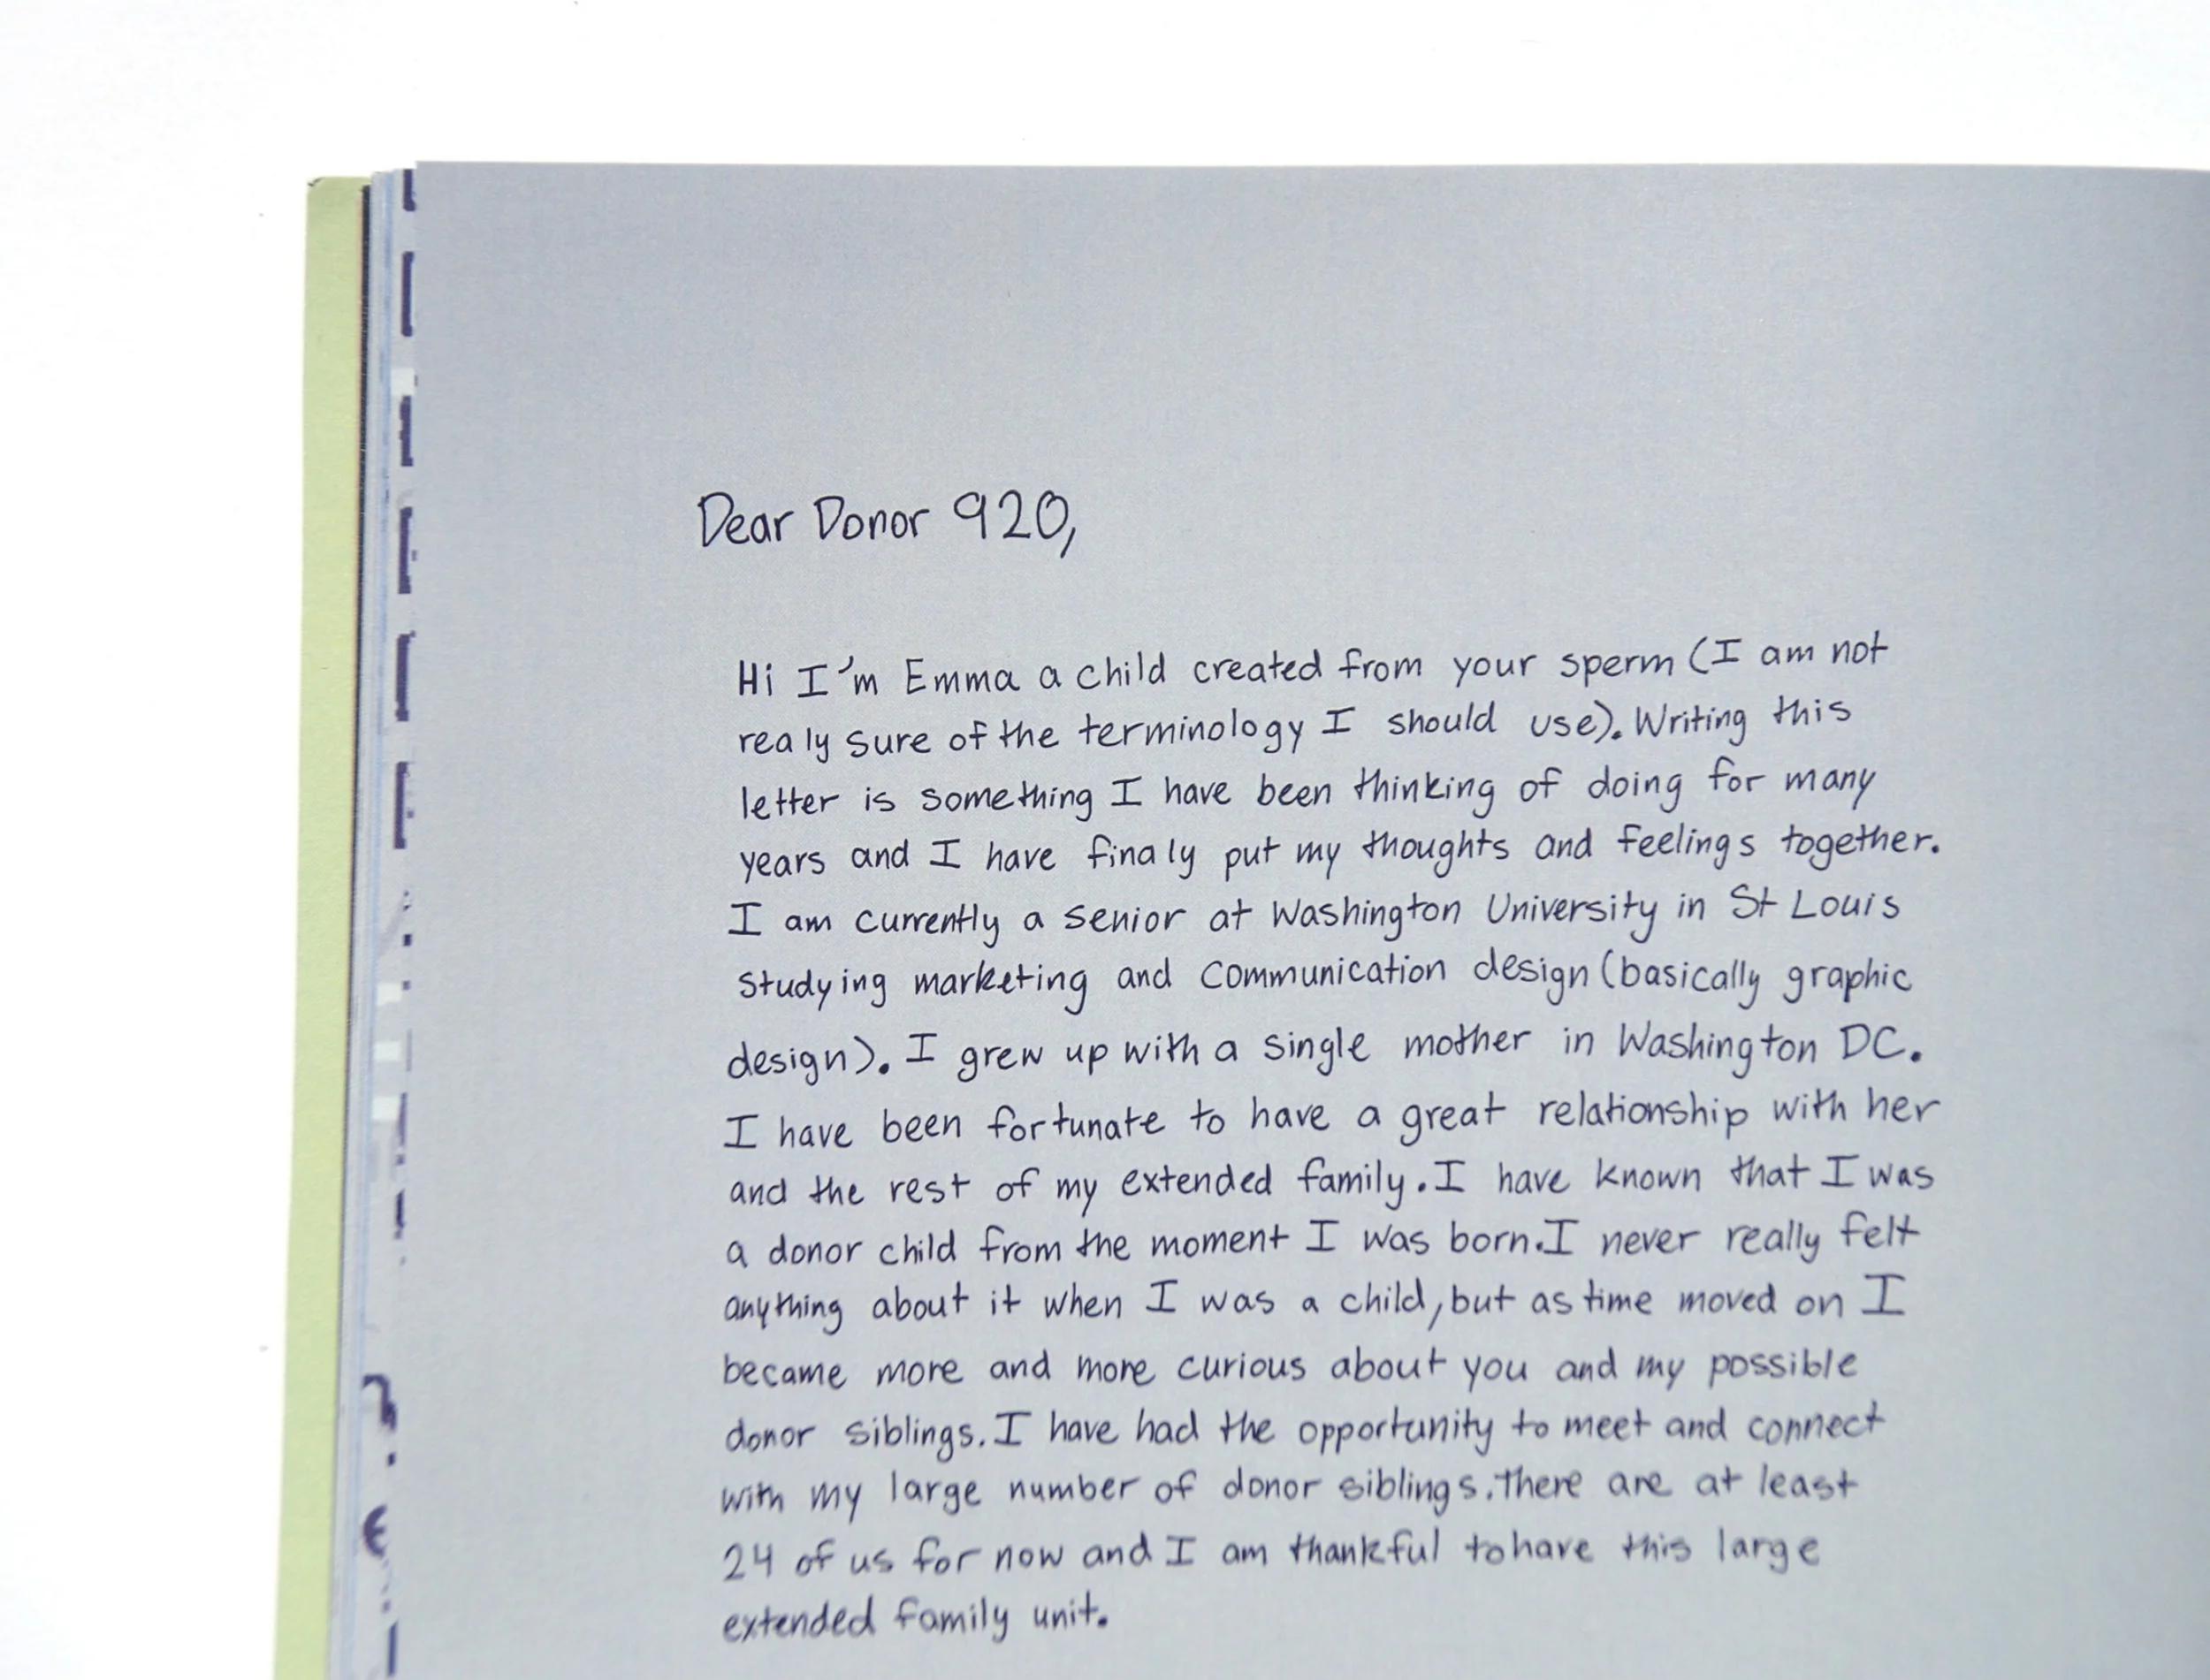 Dear Donor 920,
Hi I'm Emma a child created from your sperm (I am not
realy sure of the terminology I should use). Writing this
letter is something I have been thinking of doing for many
years and I have finaly put my thoughts and feelings together.
I am currently a senior at Washington University in St Louis
studying marketing and communication design (basically graphic
design). I grew up with a single mother in Washington DC.
I have been fortunate to have a great relationship with her
and the rest of my extended family. I have known that I was
a donor child from the moment I was born. I never really felt
anything about it when I was a child, but as time moved on I
became more and more curious about you and my possible
donor siblings. I have had the opportunity to meet and connect
with my large number of donor siblings. There are at least
24 of us for now and I am thankful to have this large
extended family unit.